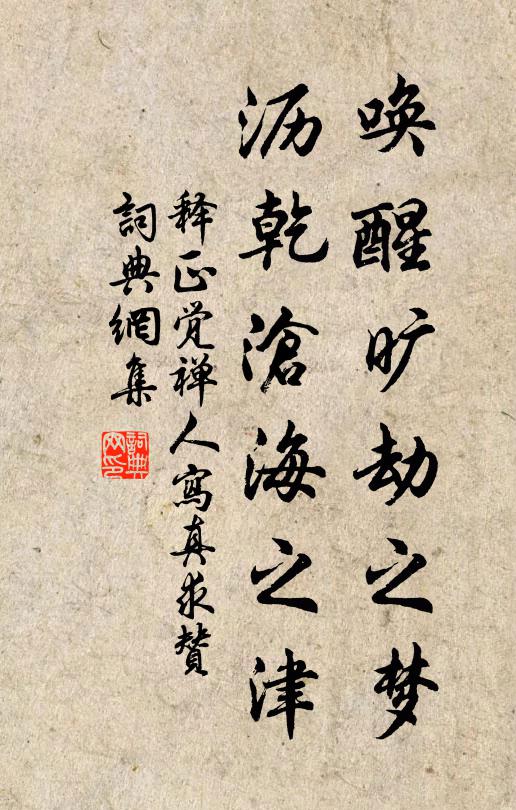 唤醒旷劫之梦
沥乾滄海之津
释正觉禅人寫真求贊
詞典網集
詞典网印